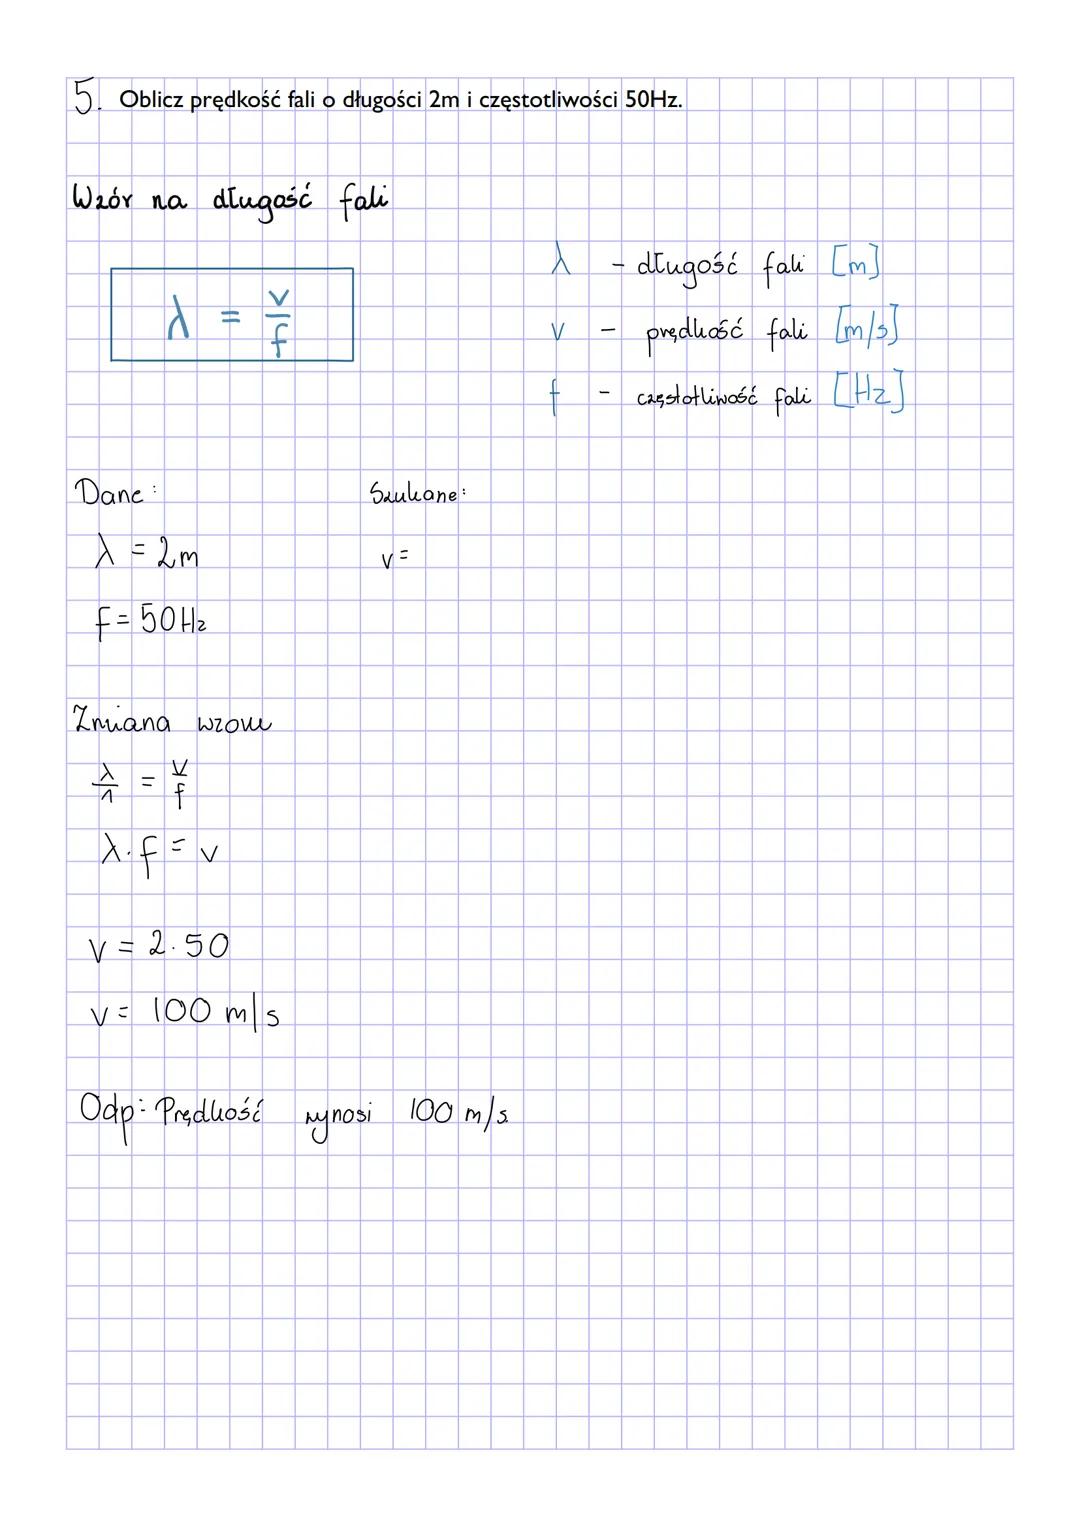 5. Oblicz prędkość fali o długości 2m i częstotliwości 50Hz.
Wzór na długość fali
λ = v/f
λ - długość fali [m]
v - prędkość fali [m/s]
f - częstotliwość fali [Hz]
Dane: Szukane:
λ = 2m v =
f = 50Hz
Zmiana wzoru
λ/1 = v/f
λ·f = v
v = 2·50
v = 100 m/s
Odp: Prędkość wynosi 100 m/s.